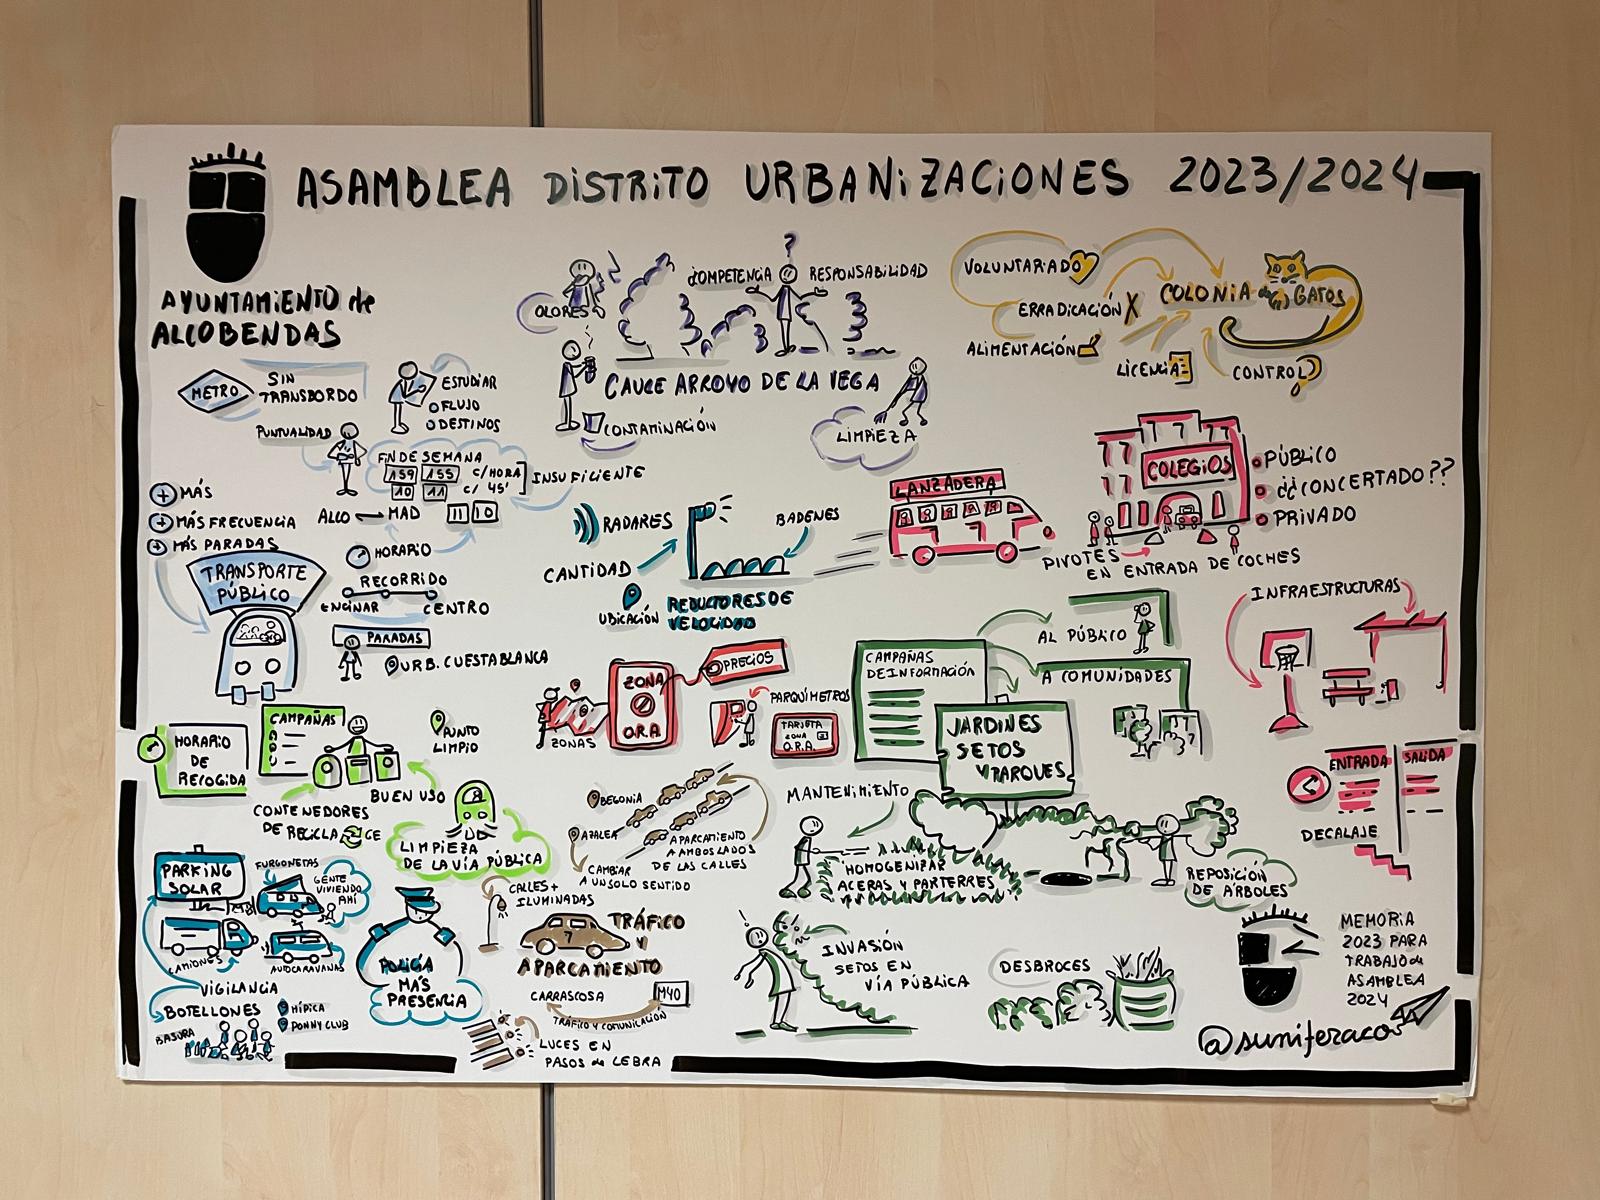 ASAMBLEA DISTRITO URBANIZACIONES 2023/2024
AYUNTAMIENTO de
ALCOBENDAS
METRO
SIN
TRANSBORDO
ESTUDIAR
FLUJO
DESTINOS
PUNTUALIDAD
FIN DE SEMANA
159 155 C/HORA
10 11 C/ 45'
INSUFICIENTE
ALCO MAD 11 10
+ MÁS
+ MÁS FRECUENCIA
+ MÁS PARADAS
TRANSPORTE
PÚBLICO
HORARIO
RECORRIDO
ENCINAR CENTRO
PARADAS
URB. CUESTABLANCA
OLORES
¿COMPETENCIA ? RESPONSABILIDAD
CAUCE ARROYO DE LA VEGA
CONTAMINACIÓN
LIMPIEZA
VOLUNTARIADO
ERRADICACIÓN X
ALIMENTACIÓN
COLONIA de GATOS
LICENCIA
CONTROL
RADARES
BADENES
CANTIDAD
UBICACIÓN
REDUCTORES DE
VELOCIDAD
LANZADERA
COLEGIOS
PÚBLICO
¿¿CONCERTADO??
PRIVADO
PIVOTES
EN ENTRADA DE COCHES
INFRAESTRUCTURAS
ENTRADA
SALIDA
DECALAJE
HORARIO
DE
RECOGIDA
CAMPAÑAS
PUNTO
LIMPIO
BUEN USO
CONTENEDORES
DE RECICLAJE
LIMPIEZA
DE LA VÍA PÚBLICA
ZONAS
ZONA
O.R.A.
PRECIOS
PARQUÍMETROS
TARJETA
ZONA
O.R.A.
CAMPAÑAS
DE INFORMACIÓN
AL PÚBLICO
A COMUNIDADES
JARDINES
SETOS
Y PARQUES
MANTENIMIENTO
HOMOGENIZAR
ACERAS Y PARTERRES
REPOSICIÓN
DE ÁRBOLES
INVASIÓN
SETOS EN
VÍA PÚBLICA
DESBROCES
BEGONIA
AZALEA
APARCAMIENTO
A AMBOS LADOS
DE LAS CALLES
CAMBIAR
A UN SOLO SENTIDO
CALLES +
ILUMINADAS
TRÁFICO
Y
APARCAMIENTO
CARRASCOSA
M40
TRÁFICO Y COMUNICACIÓN
LUCES EN
PASOS de CEBRA
PARKING
SOLAR
FURGONETAS
GENTE
VIVIENDO
AHÍ
CAMIONES
AUTOCARAVANAS
VIGILANCIA
BOTELLONES
HÍPICA
PONNY CLUB
BASURA
POLICÍA
MÁS
PRESENCIA
MEMORIA
2023 PARA
TRABAJO de
ASAMBLEA
2024
@suniferacos